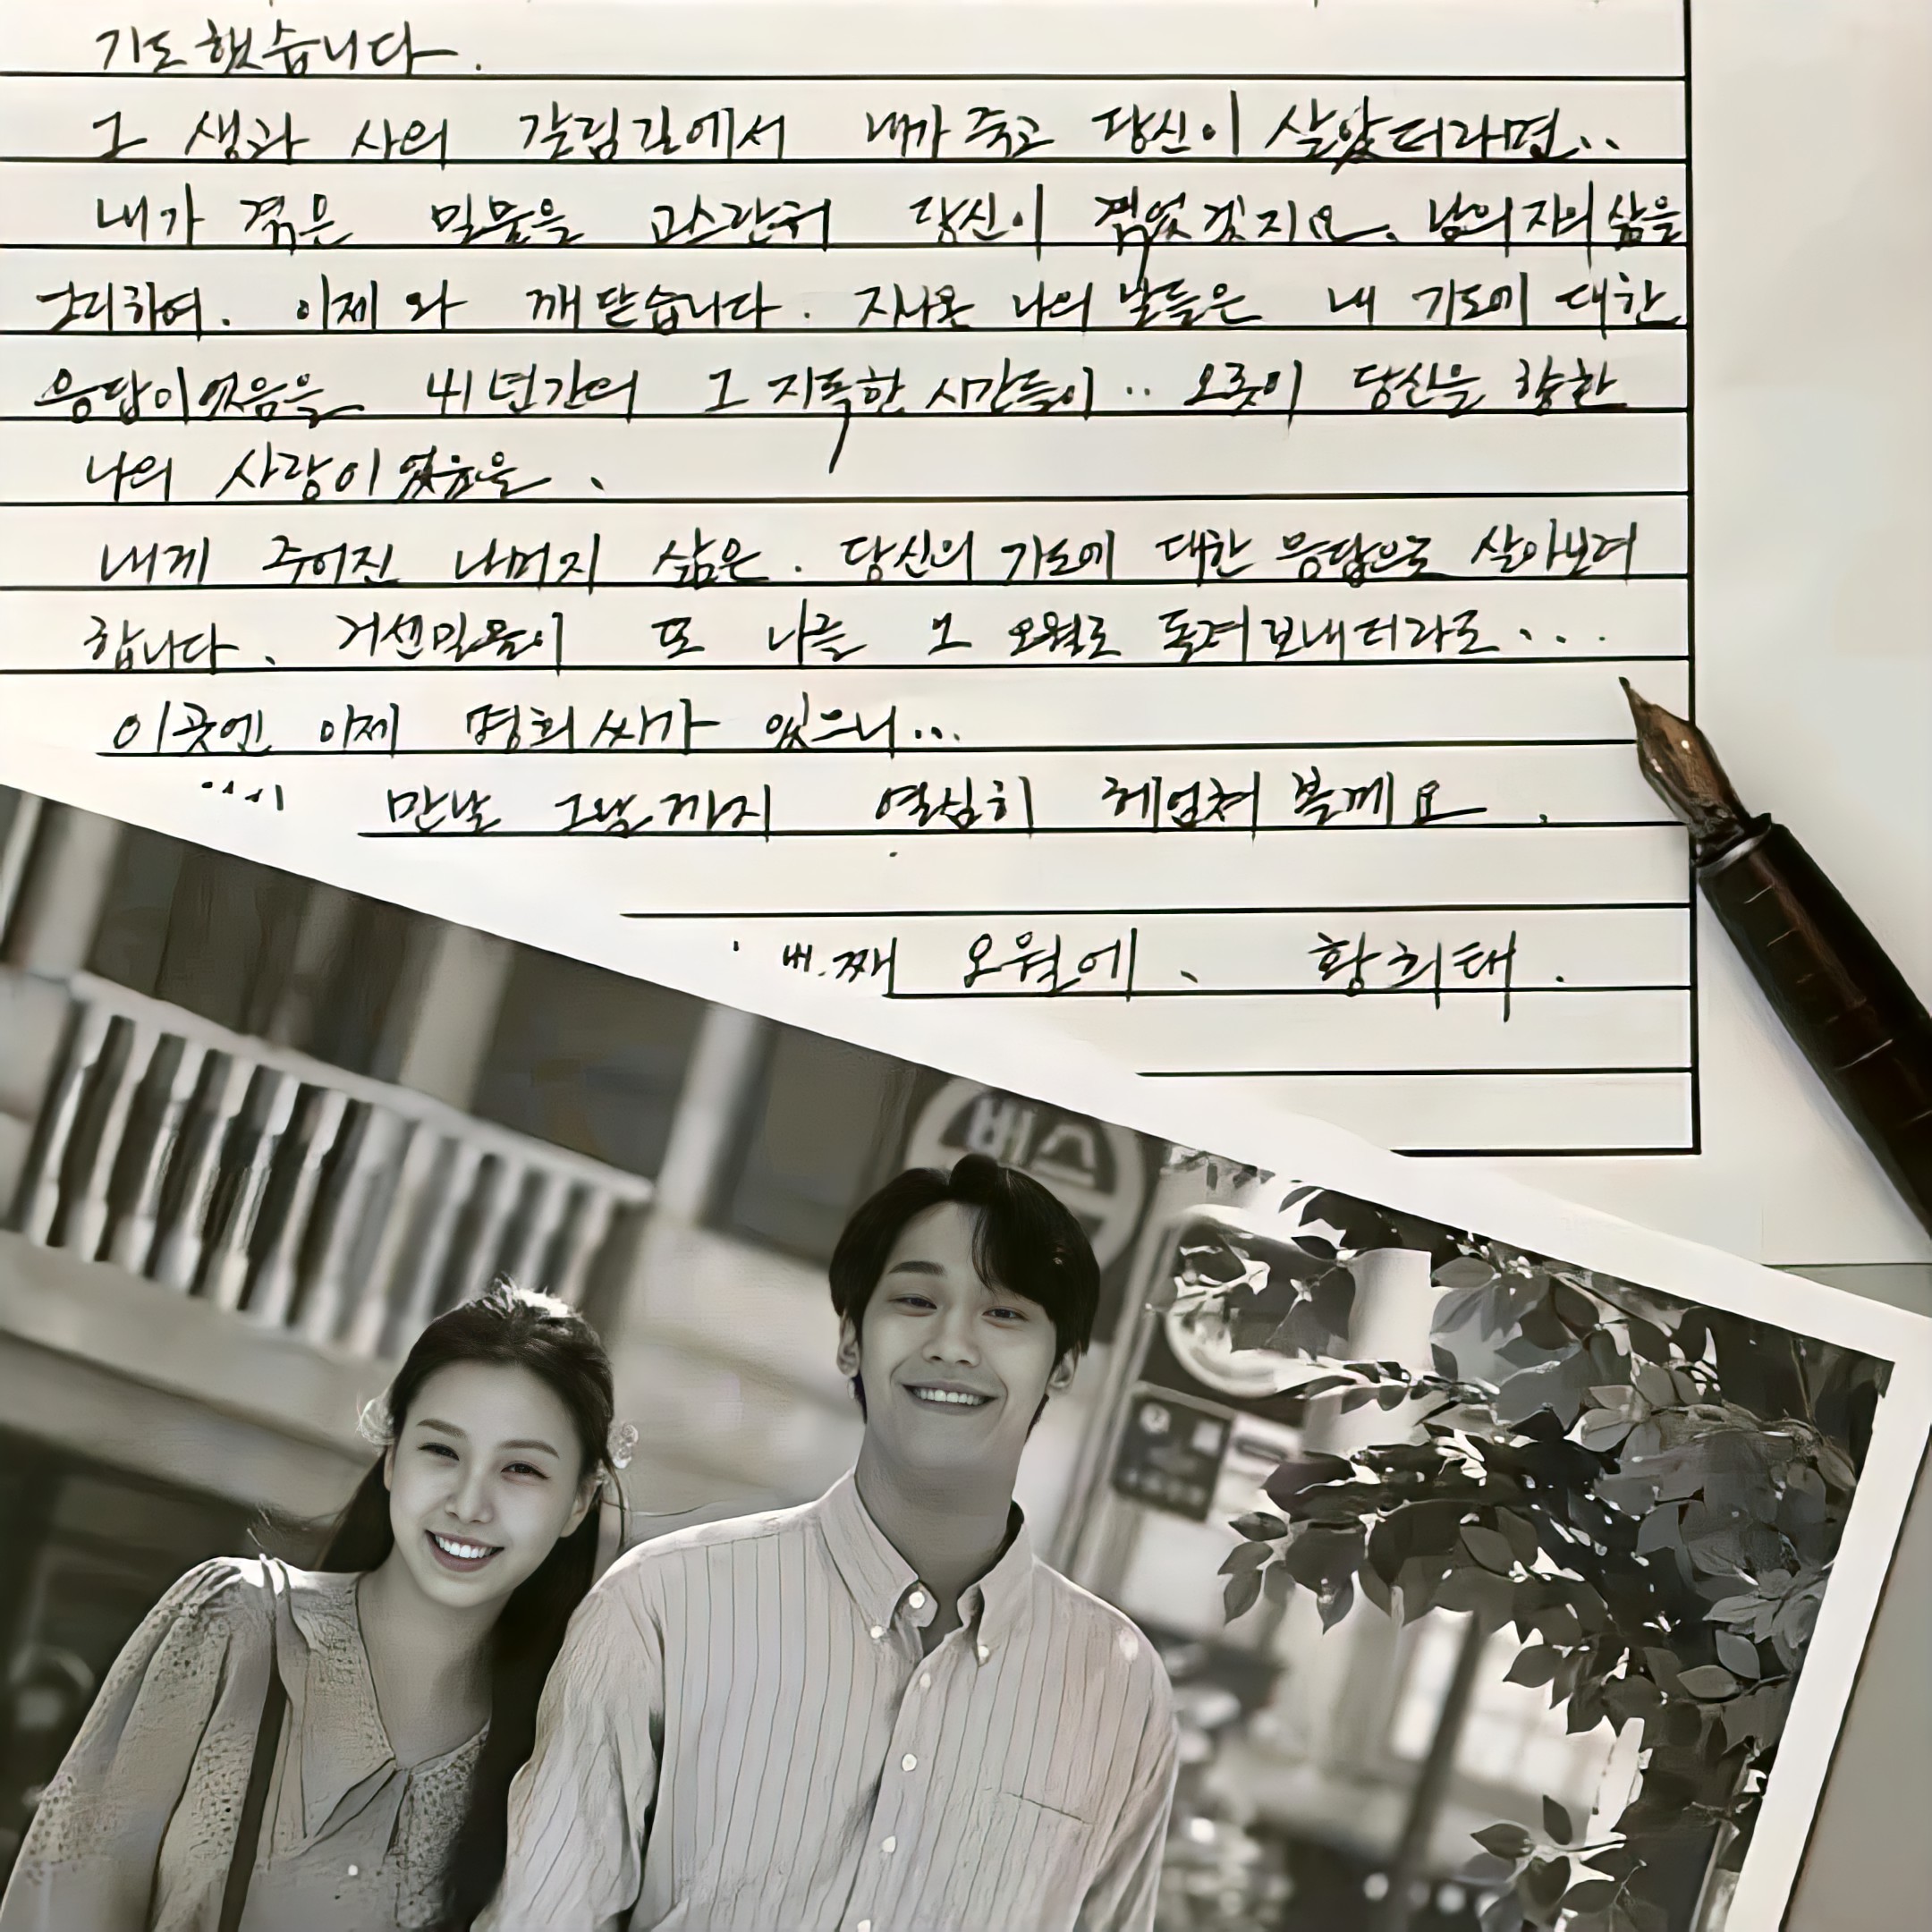 기도했습니다.
그 생과 사의 갈림길에서 내가 죽고 당신이 살았더라면..
내가 겪은 밀물을 고스란히 당신이 겪었겠지요. 남은자의 삶을
그리하여. 이제와 깨닫습니다. 지나온 나의 날들은 내 기도에 대한
응답이었음을 41년간의 그 지독한 시간들이.. 오롯이 당신을 향한
나의 사랑이었음을.
내게 주어진 나머지 삶은. 당신의 기도에 대한 응답으로 살아보려
합니다. 거센밀물이 또 나를 그 오월로 돌려보내더라도...
이곳엔 이제 명희씨가 있으니...
만날 그날까지 열심히 헤엄쳐 볼께요.
번째 오월에, 황희태.
버스